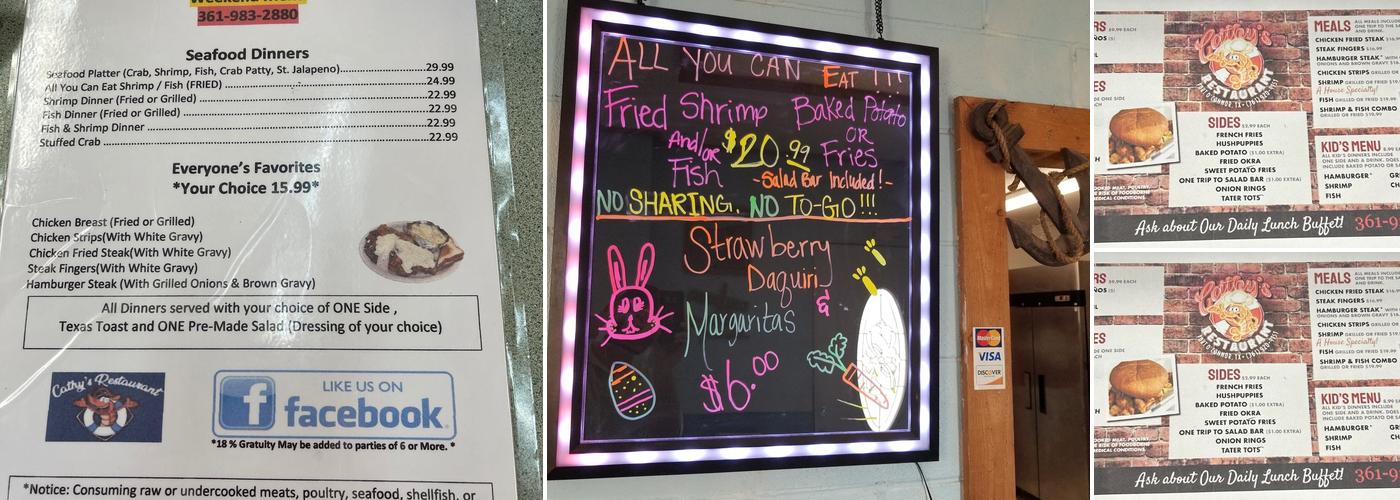 Weekend Menu
361-983-2880
Seafood Dinners
Seafood Platter (Crab, Shrimp, Fish, Crab Patty, St. Jalapeno)....29.99
All You Can Eat Shrimp / Fish (FRIED) ....24.99
Shrimp Dinner (Fried or Grilled) ....22.99
Fish Dinner (Fried or Grilled) ....22.99
Fish & Shrimp Dinner ....22.99
Stuffed Crab ....22.99
Everyone's Favorites
*Your Choice 15.99*
Chicken Breast (Fried or Grilled)
Chicken Strips(With White Gravy)
Chicken Fried Steak(With White Gravy)
Steak Fingers(With White Gravy)
Hamburger Steak (With Grilled Onions & Brown Gravy)
All Dinners served with your choice of ONE Side ,
Texas Toast and ONE Pre-Made Salad (Dressing of your choice)
Cathy's Restaurant
LIKE US ON
facebook
*18 % Gratuity May be added to parties of 6 or More. *
*Notice: Consuming raw or undercooked meats, poultry, seafood, shellfish, or
ALL YOU CAN EAT !!!
Fried Shrimp
And/or
Fish
$20.99
Baked Potato
OR
Fries
-Salad Bar Included!-
NO SHARING. NO TO-GO!!!
Strawberry
Daquiri
&
Margaritas
$6.00
MasterCard
VISA
DISCOVER
Cathy's
RESTAURANT
SIDES $2.99 EACH
FRENCH FRIES
HUSHPUPPIES
BAKED POTATO ($1.00 EXTRA)
FRIED OKRA
SWEET POTATO FRIES
ONE TRIP TO SALAD BAR ($1.00 EXTRA)
ONION RINGS
TATER TOTS
MEALS
CHICKEN FRIED STEAK
STEAK FINGERS
HAMBURGER STEAK
CHICKEN STRIPS
SHRIMP GRILLED OR FRIED
A House Specialty!
FISH GRILLED OR FRIED
SHRIMP & FISH COMBO
GRILLED OR FRIED
KID'S MENU
HAMBURGER
SHRIMP
FISH
Ask about Our Daily Lunch Buffet! 361-9
Cathy's
RESTAURANT
SIDES $2.99 EACH
FRENCH FRIES
HUSHPUPPIES
BAKED POTATO ($1.00 EXTRA)
FRIED OKRA
SWEET POTATO FRIES
ONE TRIP TO SALAD BAR ($1.00 EXTRA)
ONION RINGS
TATER TOTS
MEALS
CHICKEN FRIED STEAK
STEAK FINGERS
HAMBURGER STEAK
CHICKEN STRIPS
SHRIMP GRILLED OR FRIED
A House Specialty!
FISH GRILLED OR FRIED
SHRIMP & FISH COMBO
GRILLED OR FRIED
KID'S MENU
HAMBURGER
SHRIMP
FISH
Ask about Our Daily Lunch Buffet! 361-9